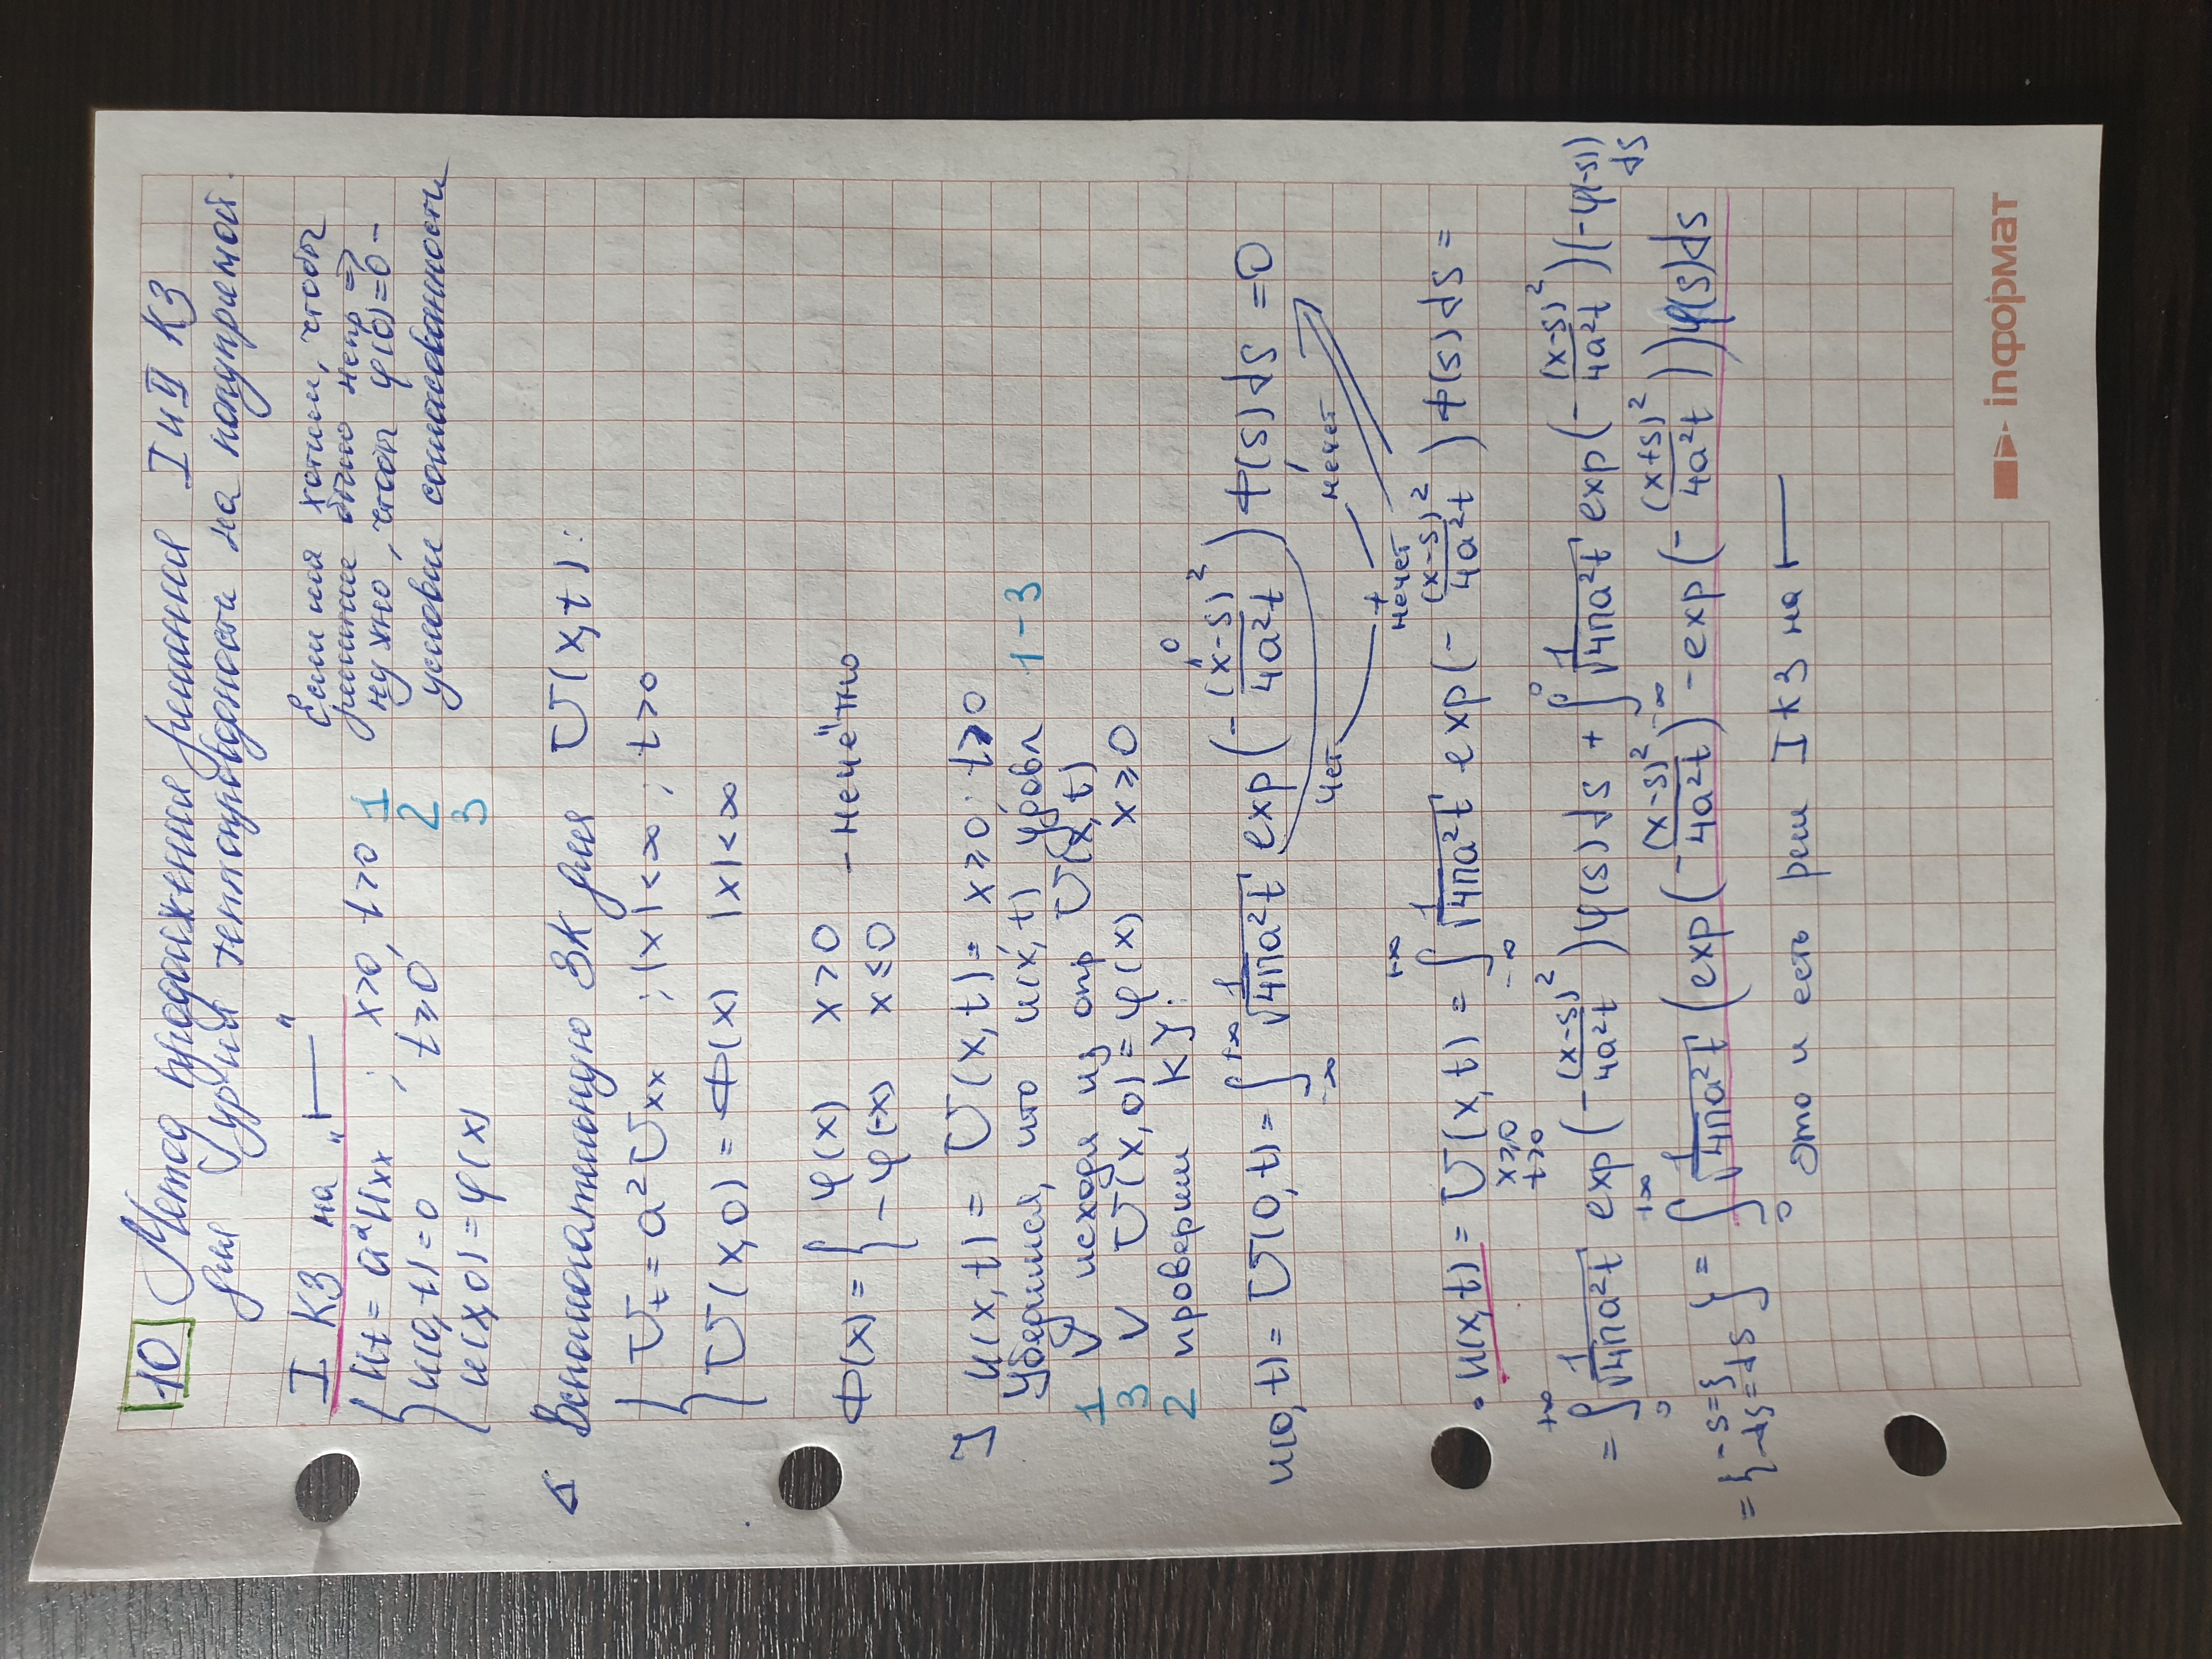 10 Метод продолжения решения I и II КЗ
для ур-ия теплопроводности на полупрямой.
I КЗ на "⊢—"
Если мы хотим, чтобы
решение было непр ⇒
нужно, чтобы φ(0)=0 –
условие согласованности
{ u_t = a² u_xx ; x>0, t>0 1
u(0,t)=0 ; t≥0 2
u(x,0)=φ(x) 3
Δ Вспомогательную ЗК для U(x,t):
{ U_t = a² U_xx ; |x|<∞ ; t>0
U(x,0) = Ф(x) |x|<∞
Ф(x) = { φ(x) x>0
-φ(-x) x≤0 - нечетно
] u(x,t) = U(x,t) = x≥0; t≥0
Убедимся, что u(x,t) удовл 1-3
1 V исходя из опр U(x,t)
3 V U(x,0)=φ(x) x≥0
2 проверим КУ:
u(0,t) = U(0,t) = ∫_{-∞}^{+∞} 1/√(4πa²t) exp(-(x-s)²/(4a²t)) Ф(s)ds = 0
0
чет + нечет
нечет
• u(x,t) = U(x,t) = ∫_{-∞}^{+∞} 1/√(4πa²t) exp(-(x-s)²/(4a²t)) Ф(s)ds =
x≥0
t≥0
= ∫_0^{+∞} 1/√(4πa²t) exp(-(x-s)²/(4a²t)) φ(s)ds + ∫_{-∞}^0 1/√(4πa²t) exp(-(x-s)²/(4a²t))(-φ(-s))ds
= {-s=ξ -ds=dξ} = ∫_0^{+∞} 1/√(4πa²t) (exp(-(x-s)²/(4a²t)) - exp(-(x+s)²/(4a²t)))φ(s)ds
Это и есть реш I КЗ на ⊢—
inФормат